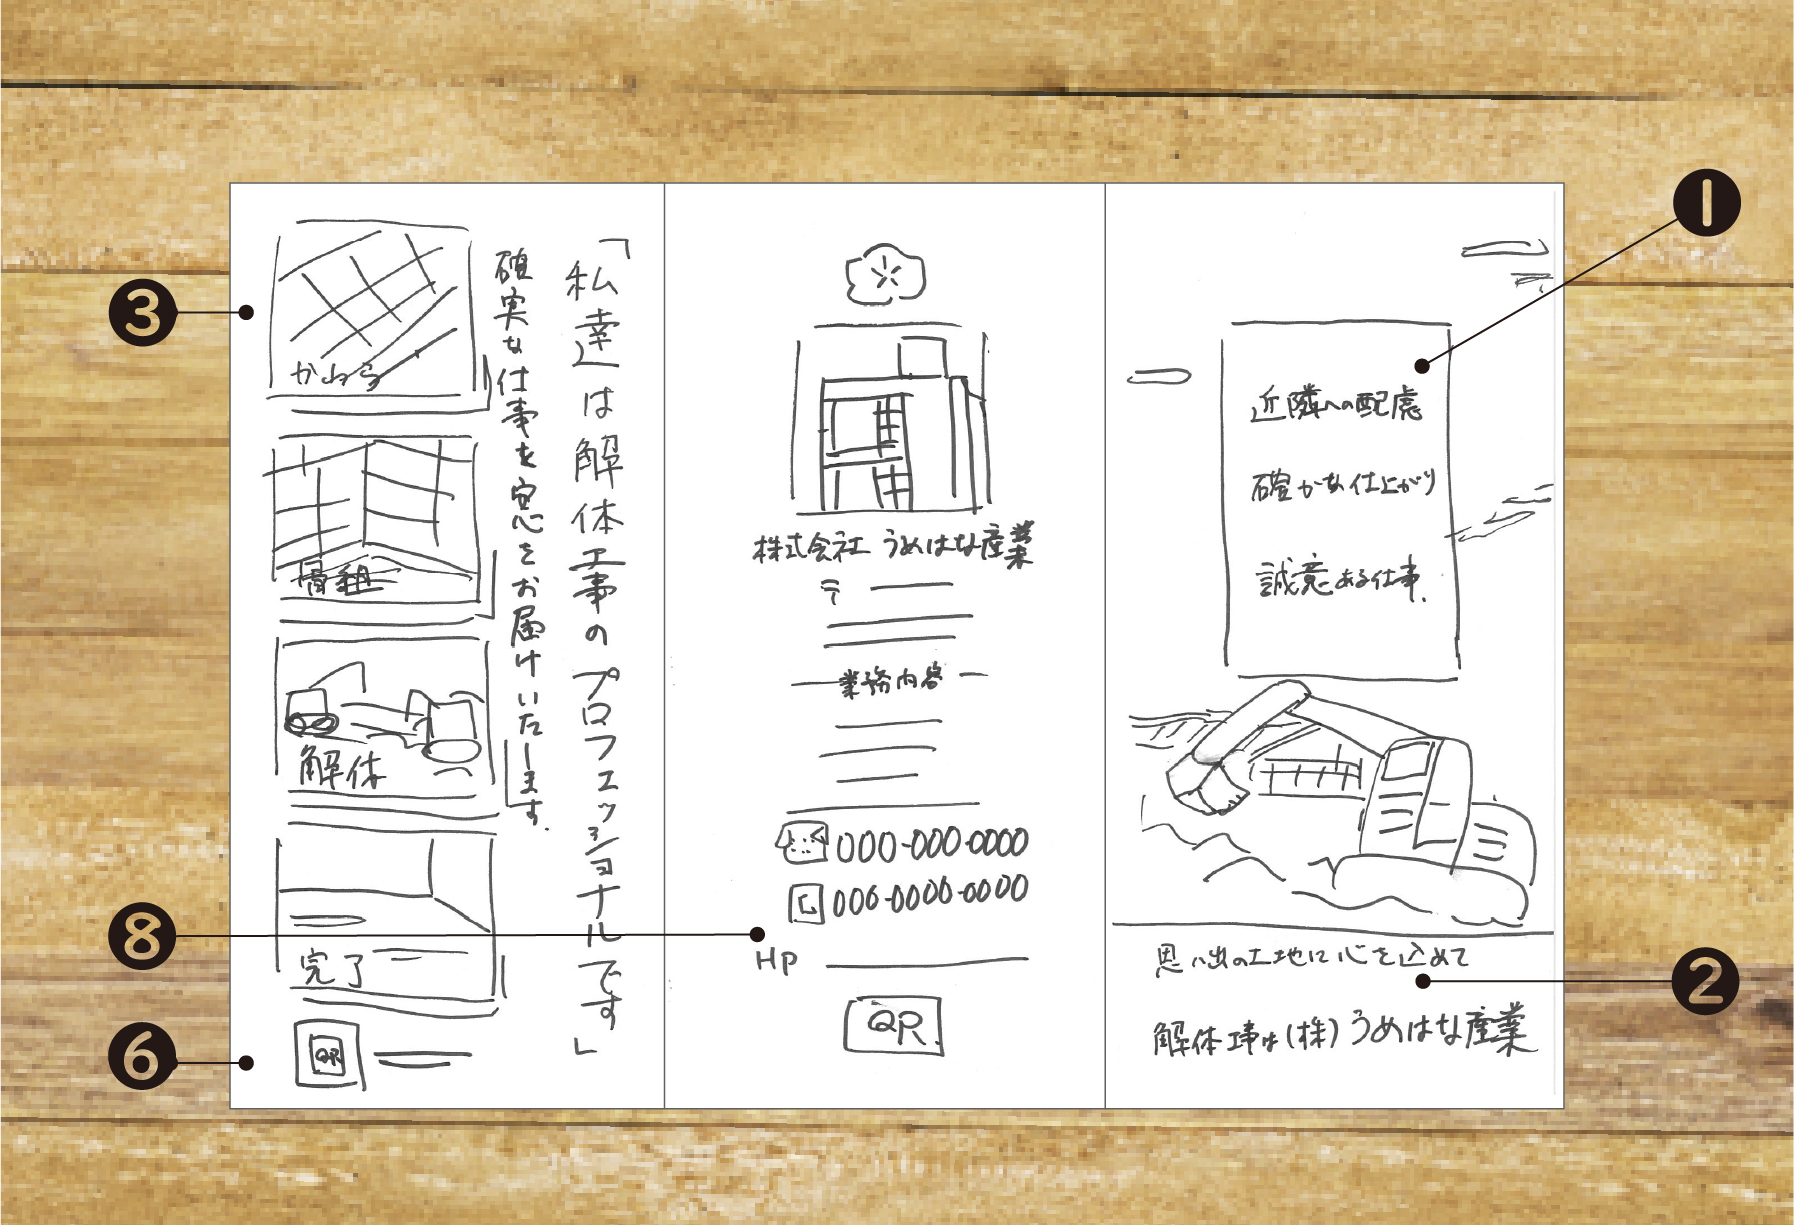 3
かわら
骨組
解体
完了
6
QR
「私達は解体工事のプロフェッショナルです」
確実な仕事を安心をお届けいたします。
株式会社 うめはな産業
〒
業務内容
000-000-0000
000-0000-0000
8
HP
QR
1
近隣への配慮
確かな仕上がり
誠意ある仕事.
2
思い出の土地に心を込めて
解体工事は(株)うめはな産業